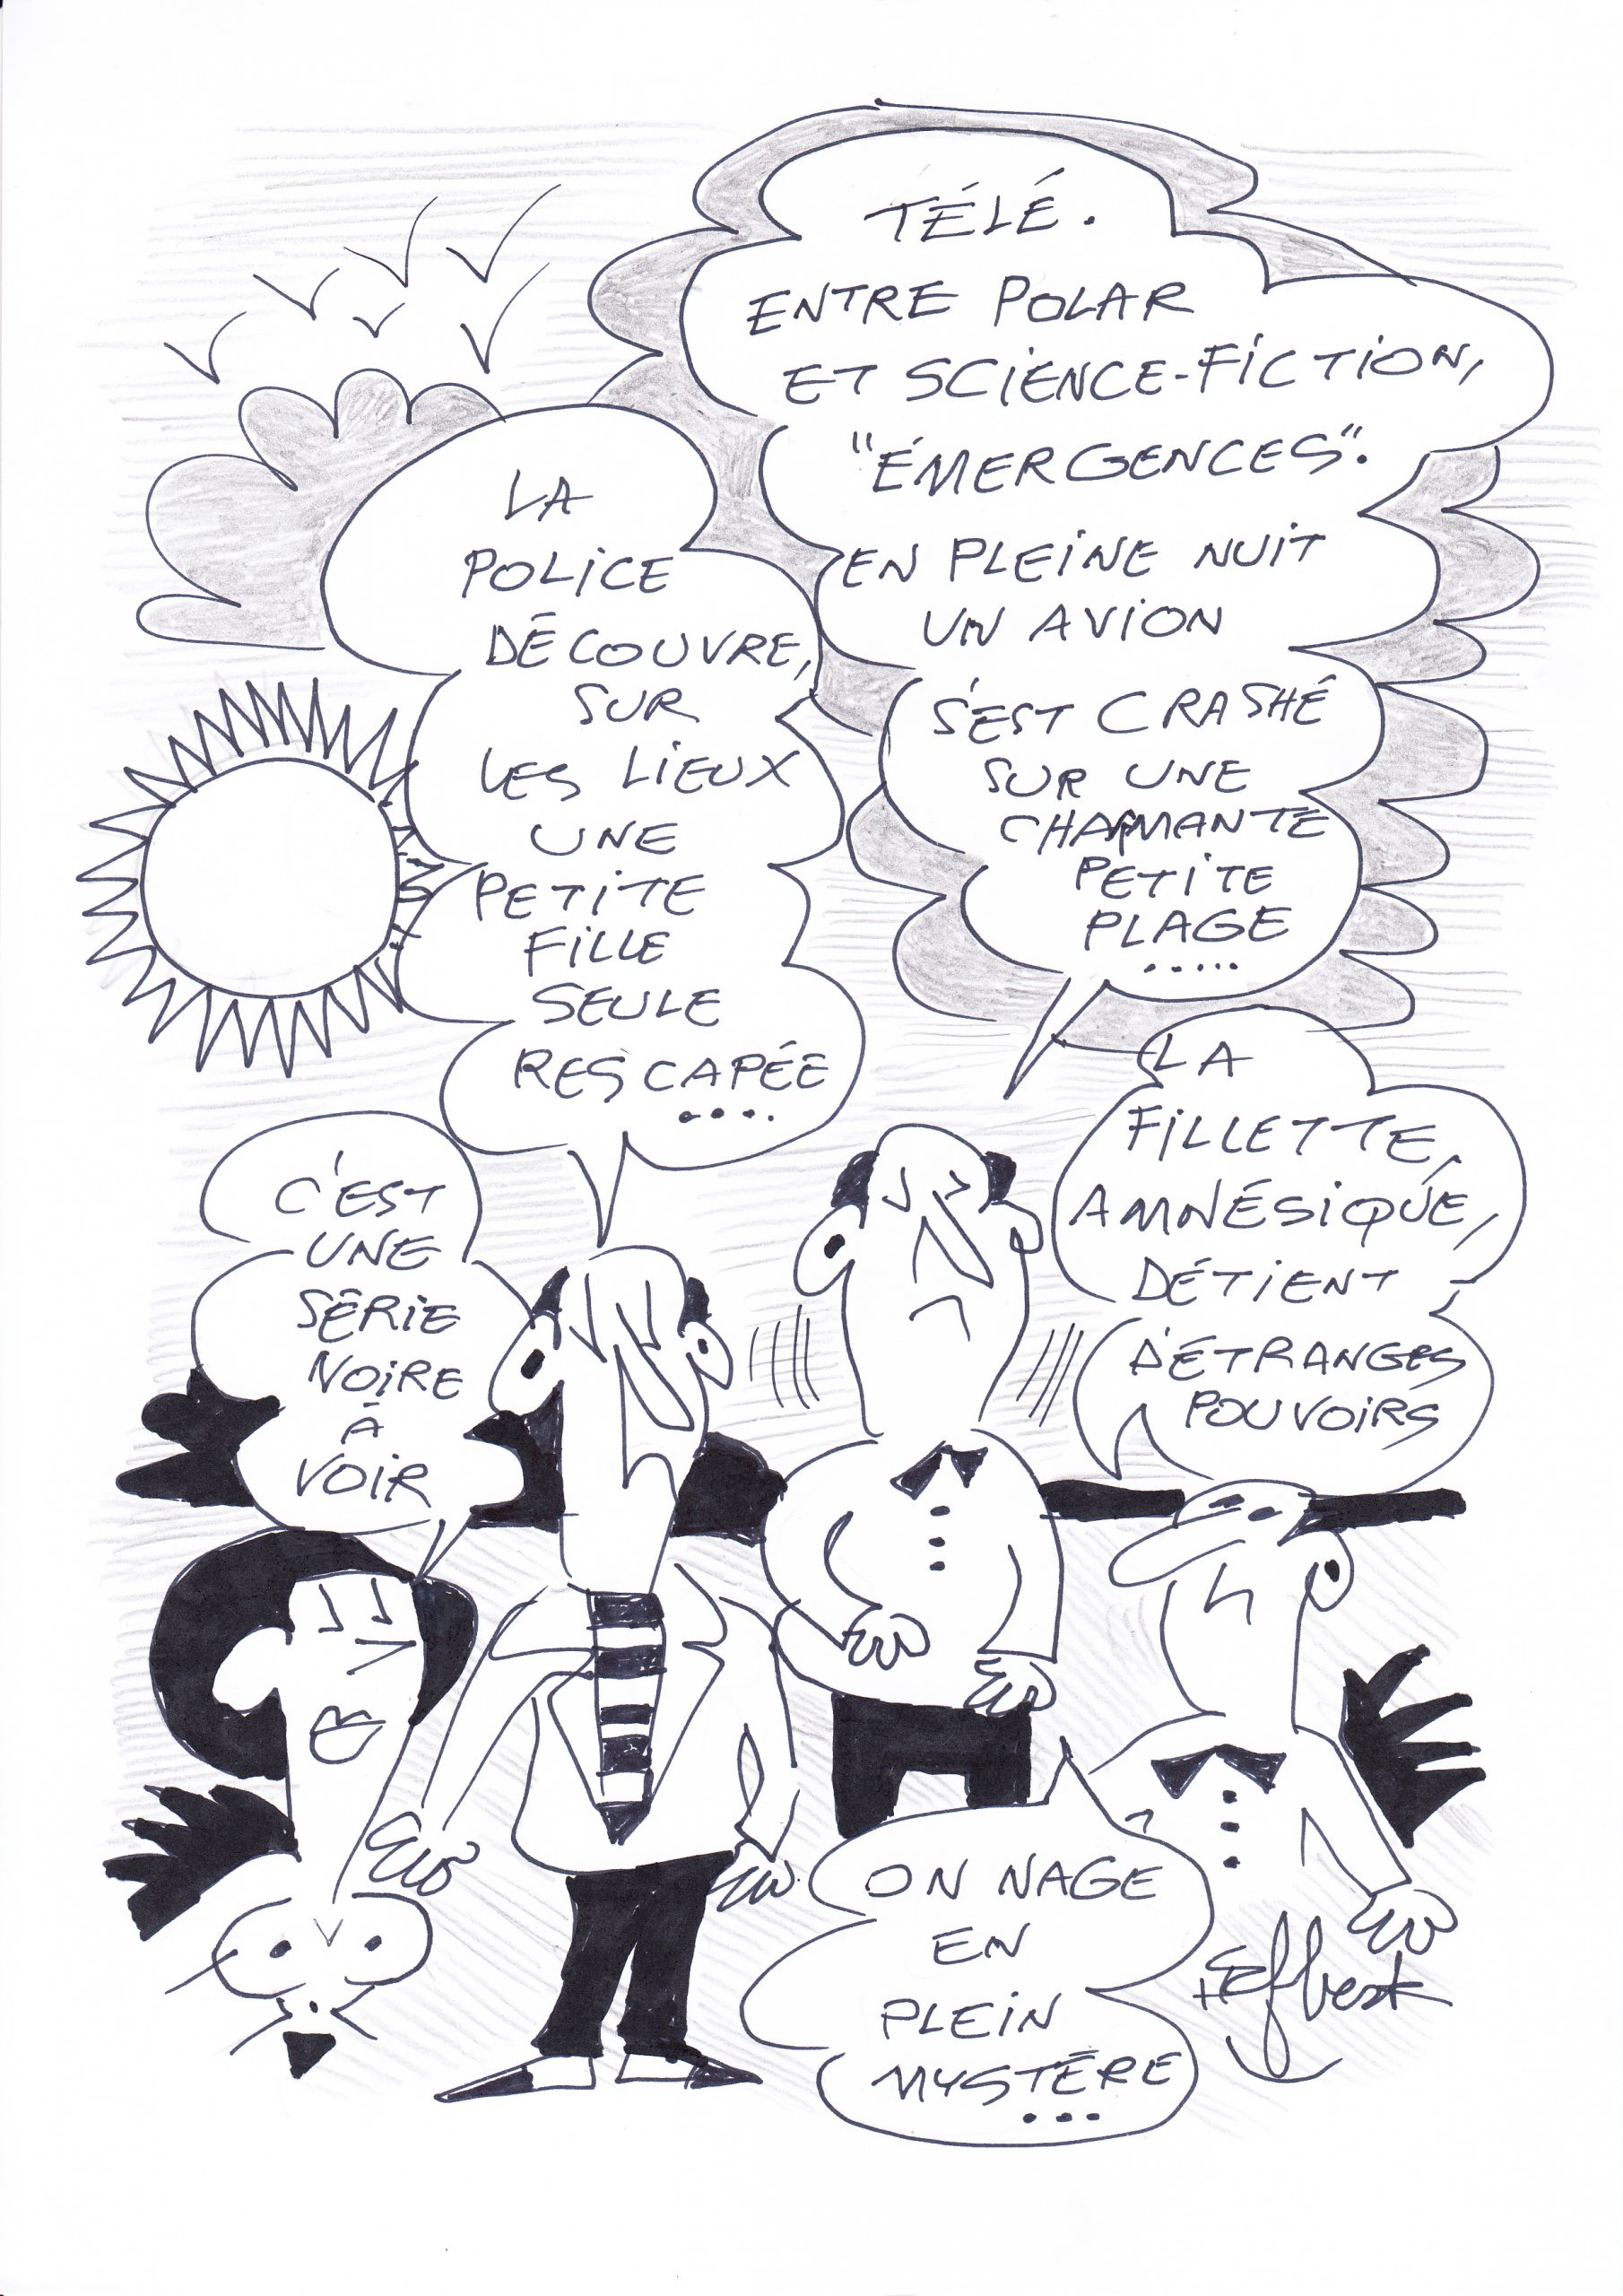 TÉLÉ.
ENTRE POLAR
ET SCIENCE-FICTION,
"ÉMERGENCES".
EN PLEINE NUIT
UN AVION
S'EST CRASHÉ
SUR UNE
CHARMANTE
PETITE
PLAGE
.....
LA
POLICE
DÉCOUVRE,
SUR
LES LIEUX
UNE
PETITE
FILLE
SEULE
RESCAPÉE
....
LA
FILLETTE,
AMNÉSIQUE,
DÉTIENT
D'ÉTRANGES
POUVOIRS
C'EST
UNE
SÉRIE
NOIRE
À
VOIR
ON NAGE
EN
PLEIN
MYSTÈRE
...